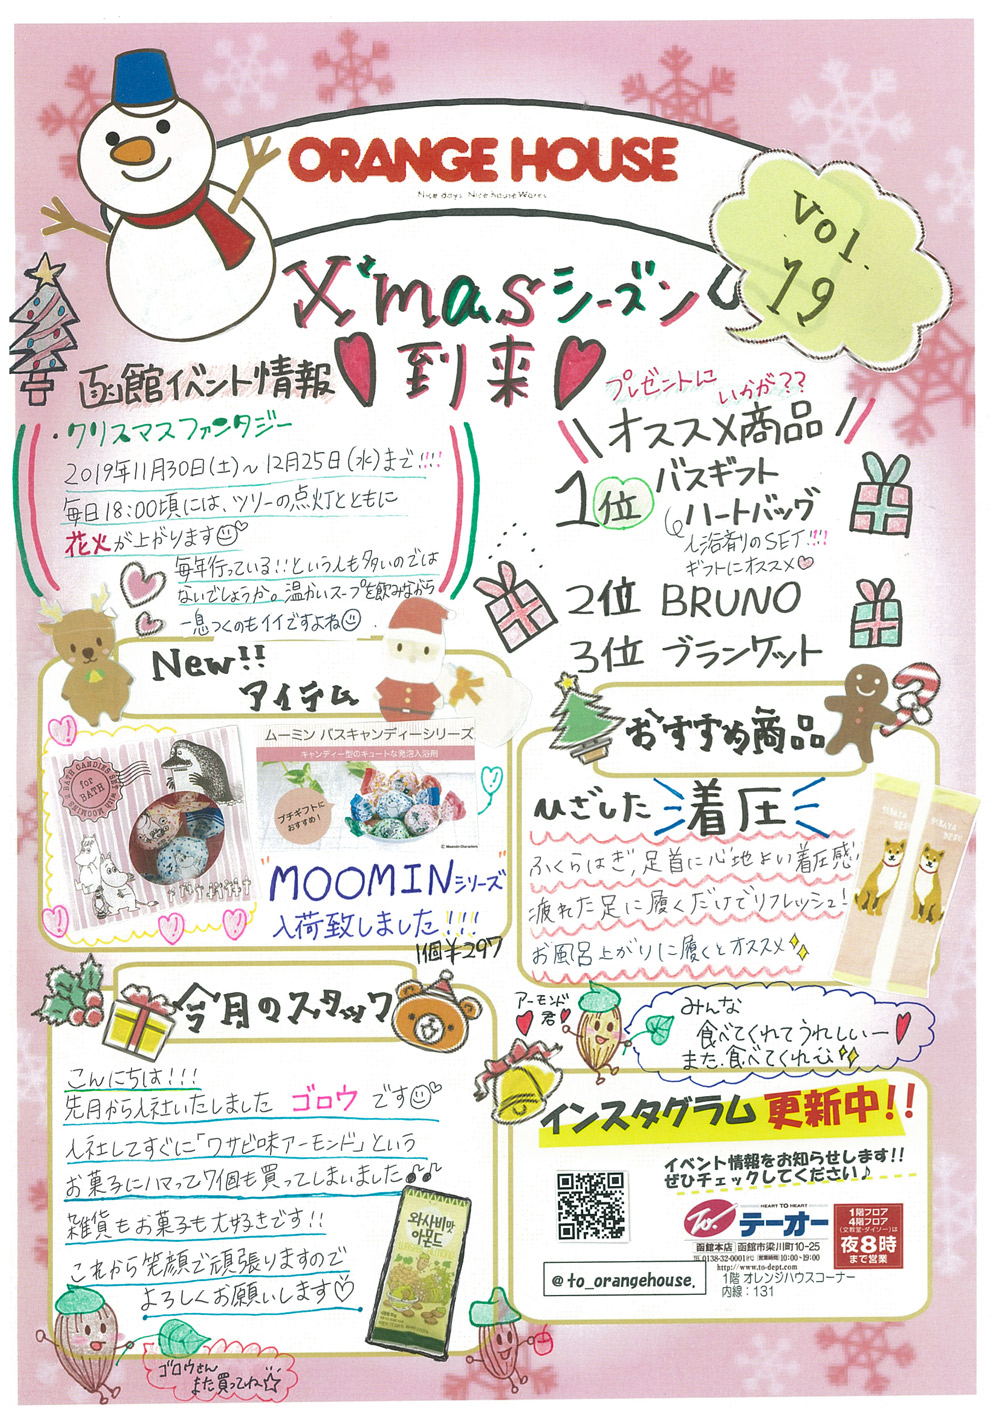 ORANGE HOUSE
Nice days. Nice house Wares
vol.
19
X'masシーズン
到来
函館イベント情報
・クリスマスファンタジー
2019年11月30日(土)~12月25日(水)まで!!!!
毎日18:00頃には、ツリーの点灯とともに
花火が上がります
毎年行っている!!という人も多いのでは
ないでしょうか。温かいスープを飲みながら
一息つくのもイイですよね
プレゼントに
いかが??
オススメ商品
1位 バスギフト
ハートバッグ
入浴剤のSET!!!!
ギフトにオススメ♡
2位 BRUNO
3位 ブランケット
New!!
アイテム
for
BATH
ムーミン バスキャンディーシリーズ
キャンディー型のキュートな発泡入浴剤
プチギフトに
おすすめ!
© Moomin Characters
"MOOMINシリーズ"
入荷致しました!!!
1個¥297
おすすめ商品
ひざした 着圧
ふくらはぎ,足首に心地よい着圧感
疲れた足に履くだけでリフレッシュ!
お風呂上がりに履くとオススメ
アーモンド
君
みんな
食べてくれてうれしいー
また食べてくれ
今月のスタッフ
こんにちは!!!
先月から入社いたしました ゴロウ です
入社してすぐに「ワサビ味アーモンド」という
お菓子にハマって7個も買ってしまいました♪♪
雑貨もお菓子も大好きです!!
これから笑顔で頑張りますので
よろしくお願いします♡
와사비맛
아몬드
ゴロウさん
また買ってね☆
インスタグラム 更新中!!
イベント情報をお知らせします!!
ぜひチェックしてください♪
HEART TO HEART
To. テーオー
函館本店 函館市梁川町10-25
TEL 0138-32-0001 営業時間 10:00~19:00
http://www.to-dept.com
1階フロア
4階フロア
(文教堂・ダイソー)は
夜8時
まで営業
@to_orangehouse.
1階 オレンジハウスコーナー
内線:131